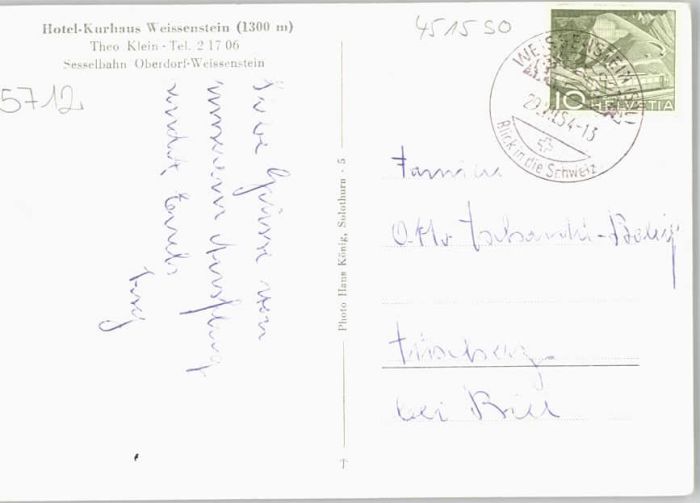 Hotel-Kurhaus Weissenstein (1300 m)
Theo Klein - Tel. 2 17 06
Sesselbahn Oberdorf-Weissenstein
5712
4515 SO
WEISSENSTEIN (SOL)
54-13
Blick in die Schweiz
10 HELVETIA
Liebe Grüsse von
unserem Ausflug
Photo Hans König, Solothurn - 5
Familie
Otto
bei Biel